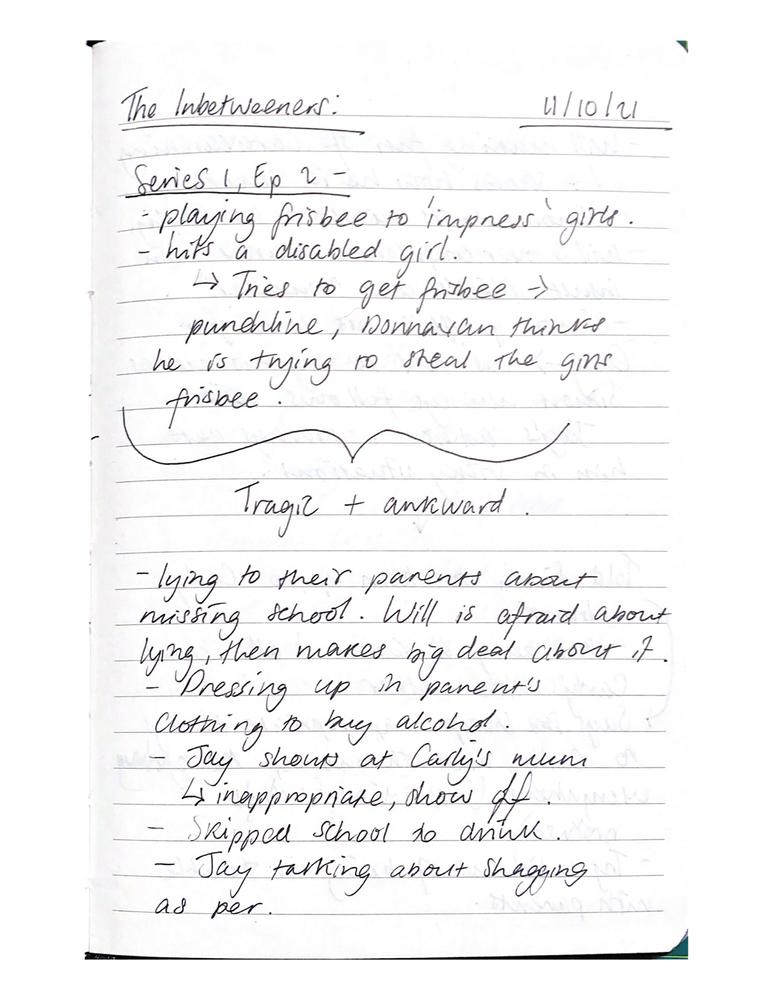 The Inbetweeners: 11/10/21
Series 1, Ep 2 -
- playing frisbee to 'impress' girls.
- hits a disabled girl.
↳ Tries to get frisbee →
punchline, Donnavan thinks
he is trying to steal the girls
frisbee.
Tragic + ankward.
- lying to their parents about
missing school. Will is afraid about
lying, then makes big deal about it.
- Dressing up in parent's
clothing to buy alcohol.
- Jay shouts at Carly's mum
↳ inappropriate, show off.
- Skipped school to drink.
- Jay talking about shagging
as per.